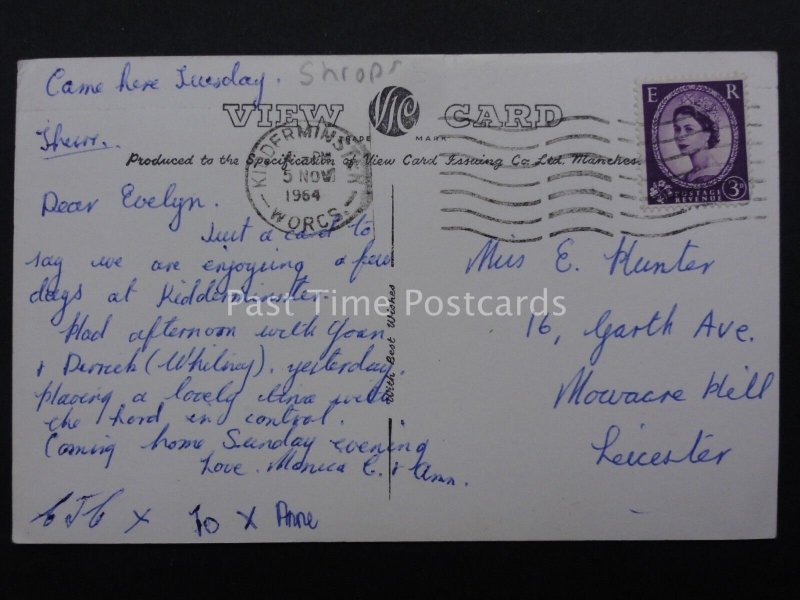 Came here Tuesday. Shrops
VIEW CARD
TRADE MARK
Produced to the Specification of View Card Issuing Co. Ltd. Manches
Thurs.
KIDDERMINSTER
5 NOV
1964
WORCS.
E R
POSTAGE
REVENUE
3D
Dear Evelyn.
Just a card to
say we are enjoying a few
days at Kidderminster.
Had afternoon with Joan
& Derrick (Whitney). yesterday.
Having a lovely time with
the Lord in control.
Coming home Sunday evening
Love. Monica C. & Ann.
X Jo X Anne
With Best Wishes
Miss E. Hunter
16, Garth Ave.
Mowacre Hill
Leicester
Past Time Postcards